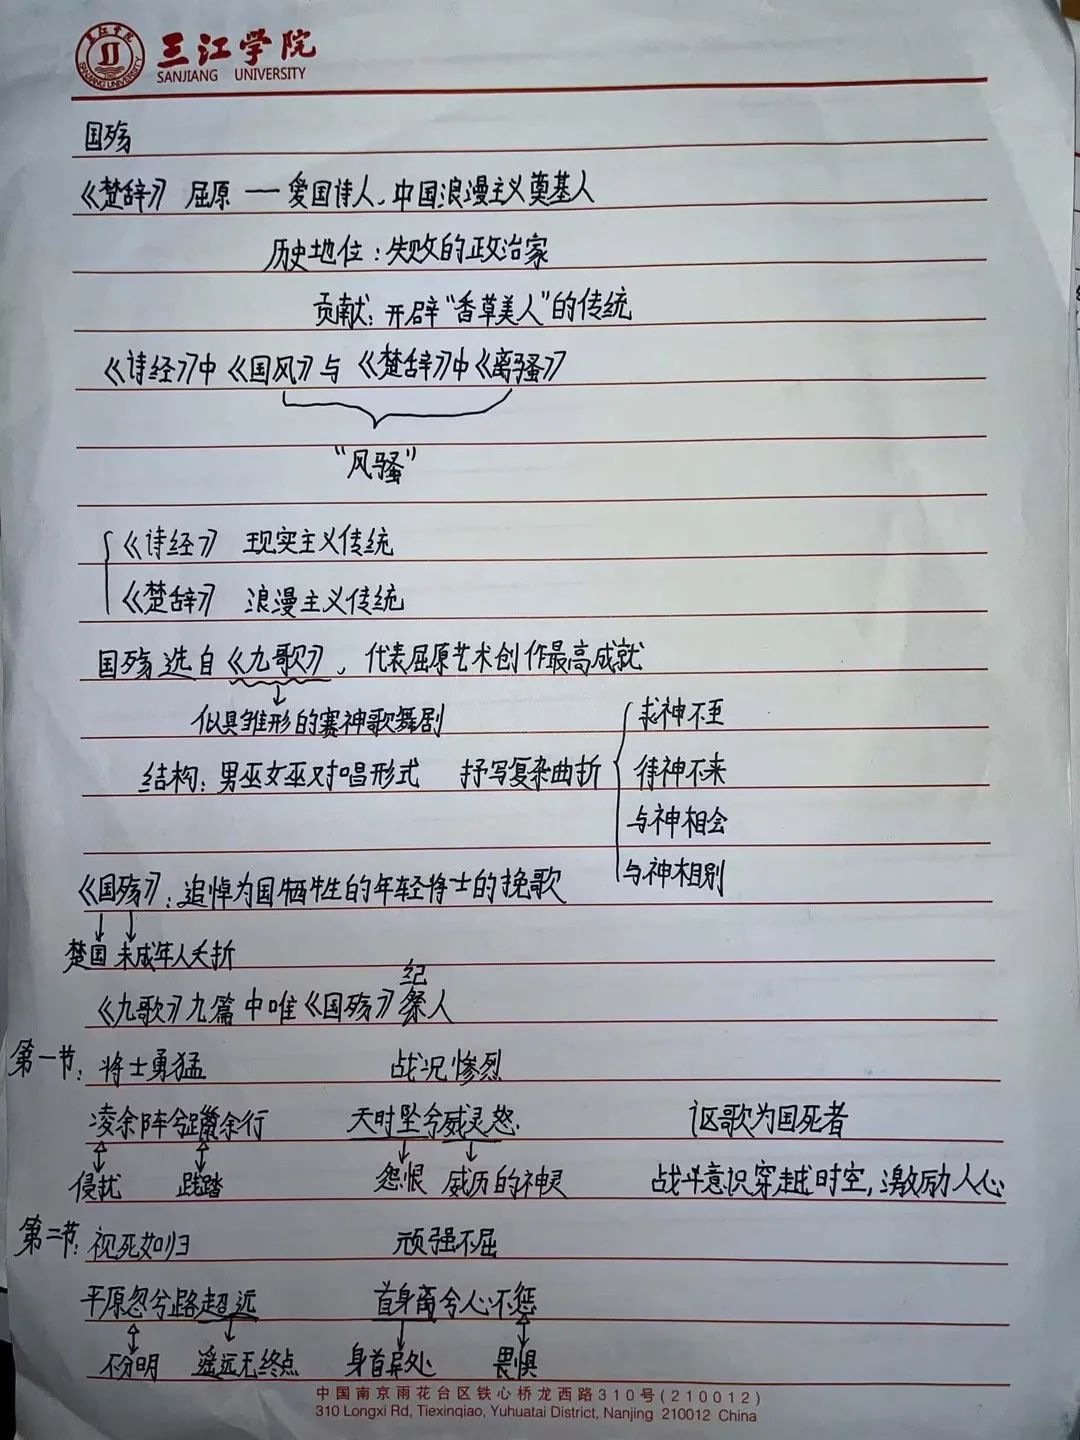 三江学院
SANJIANG UNIVERSITY
国殇
《楚辞》 屈原 — 爱国诗人,中国浪漫主义奠基人
历史地位:失败的政治家
贡献:开辟“香草美人”的传统
《诗经》中《国风》与《楚辞》中《离骚》
“风骚”
《诗经》 现实主义传统
《楚辞》 浪漫主义传统
国殇选自《九歌》,代表屈原艺术创作最高成就
似具雏形的赛神歌舞剧
结构:男巫女巫对唱形式 抒写复杂曲折
求神不至
待神不来
与神相会
与神相别
《国殇》:追悼为国牺牲的年轻将士的挽歌
楚国 未成年人夭折
纪
《九歌》九篇中唯《国殇》祭人
第一节: 将士勇猛 战况惨烈
凌余阵兮躐余行 天时坠兮威灵怒. 讴歌为国死者
侵扰 践踏 怨恨 威历的神灵 战斗意识穿越时空,激励人心
第二节: 视死如归 顽强不屈
平原忽兮路超远 首身离兮心不惩
不分明 遥远无终点 身首异处 畏惧
中国南京雨花台区铁心桥龙西路310号(210012)
310 Longxi Rd, Tiexinqiao, Yuhuatai District, Nanjing 210012 China